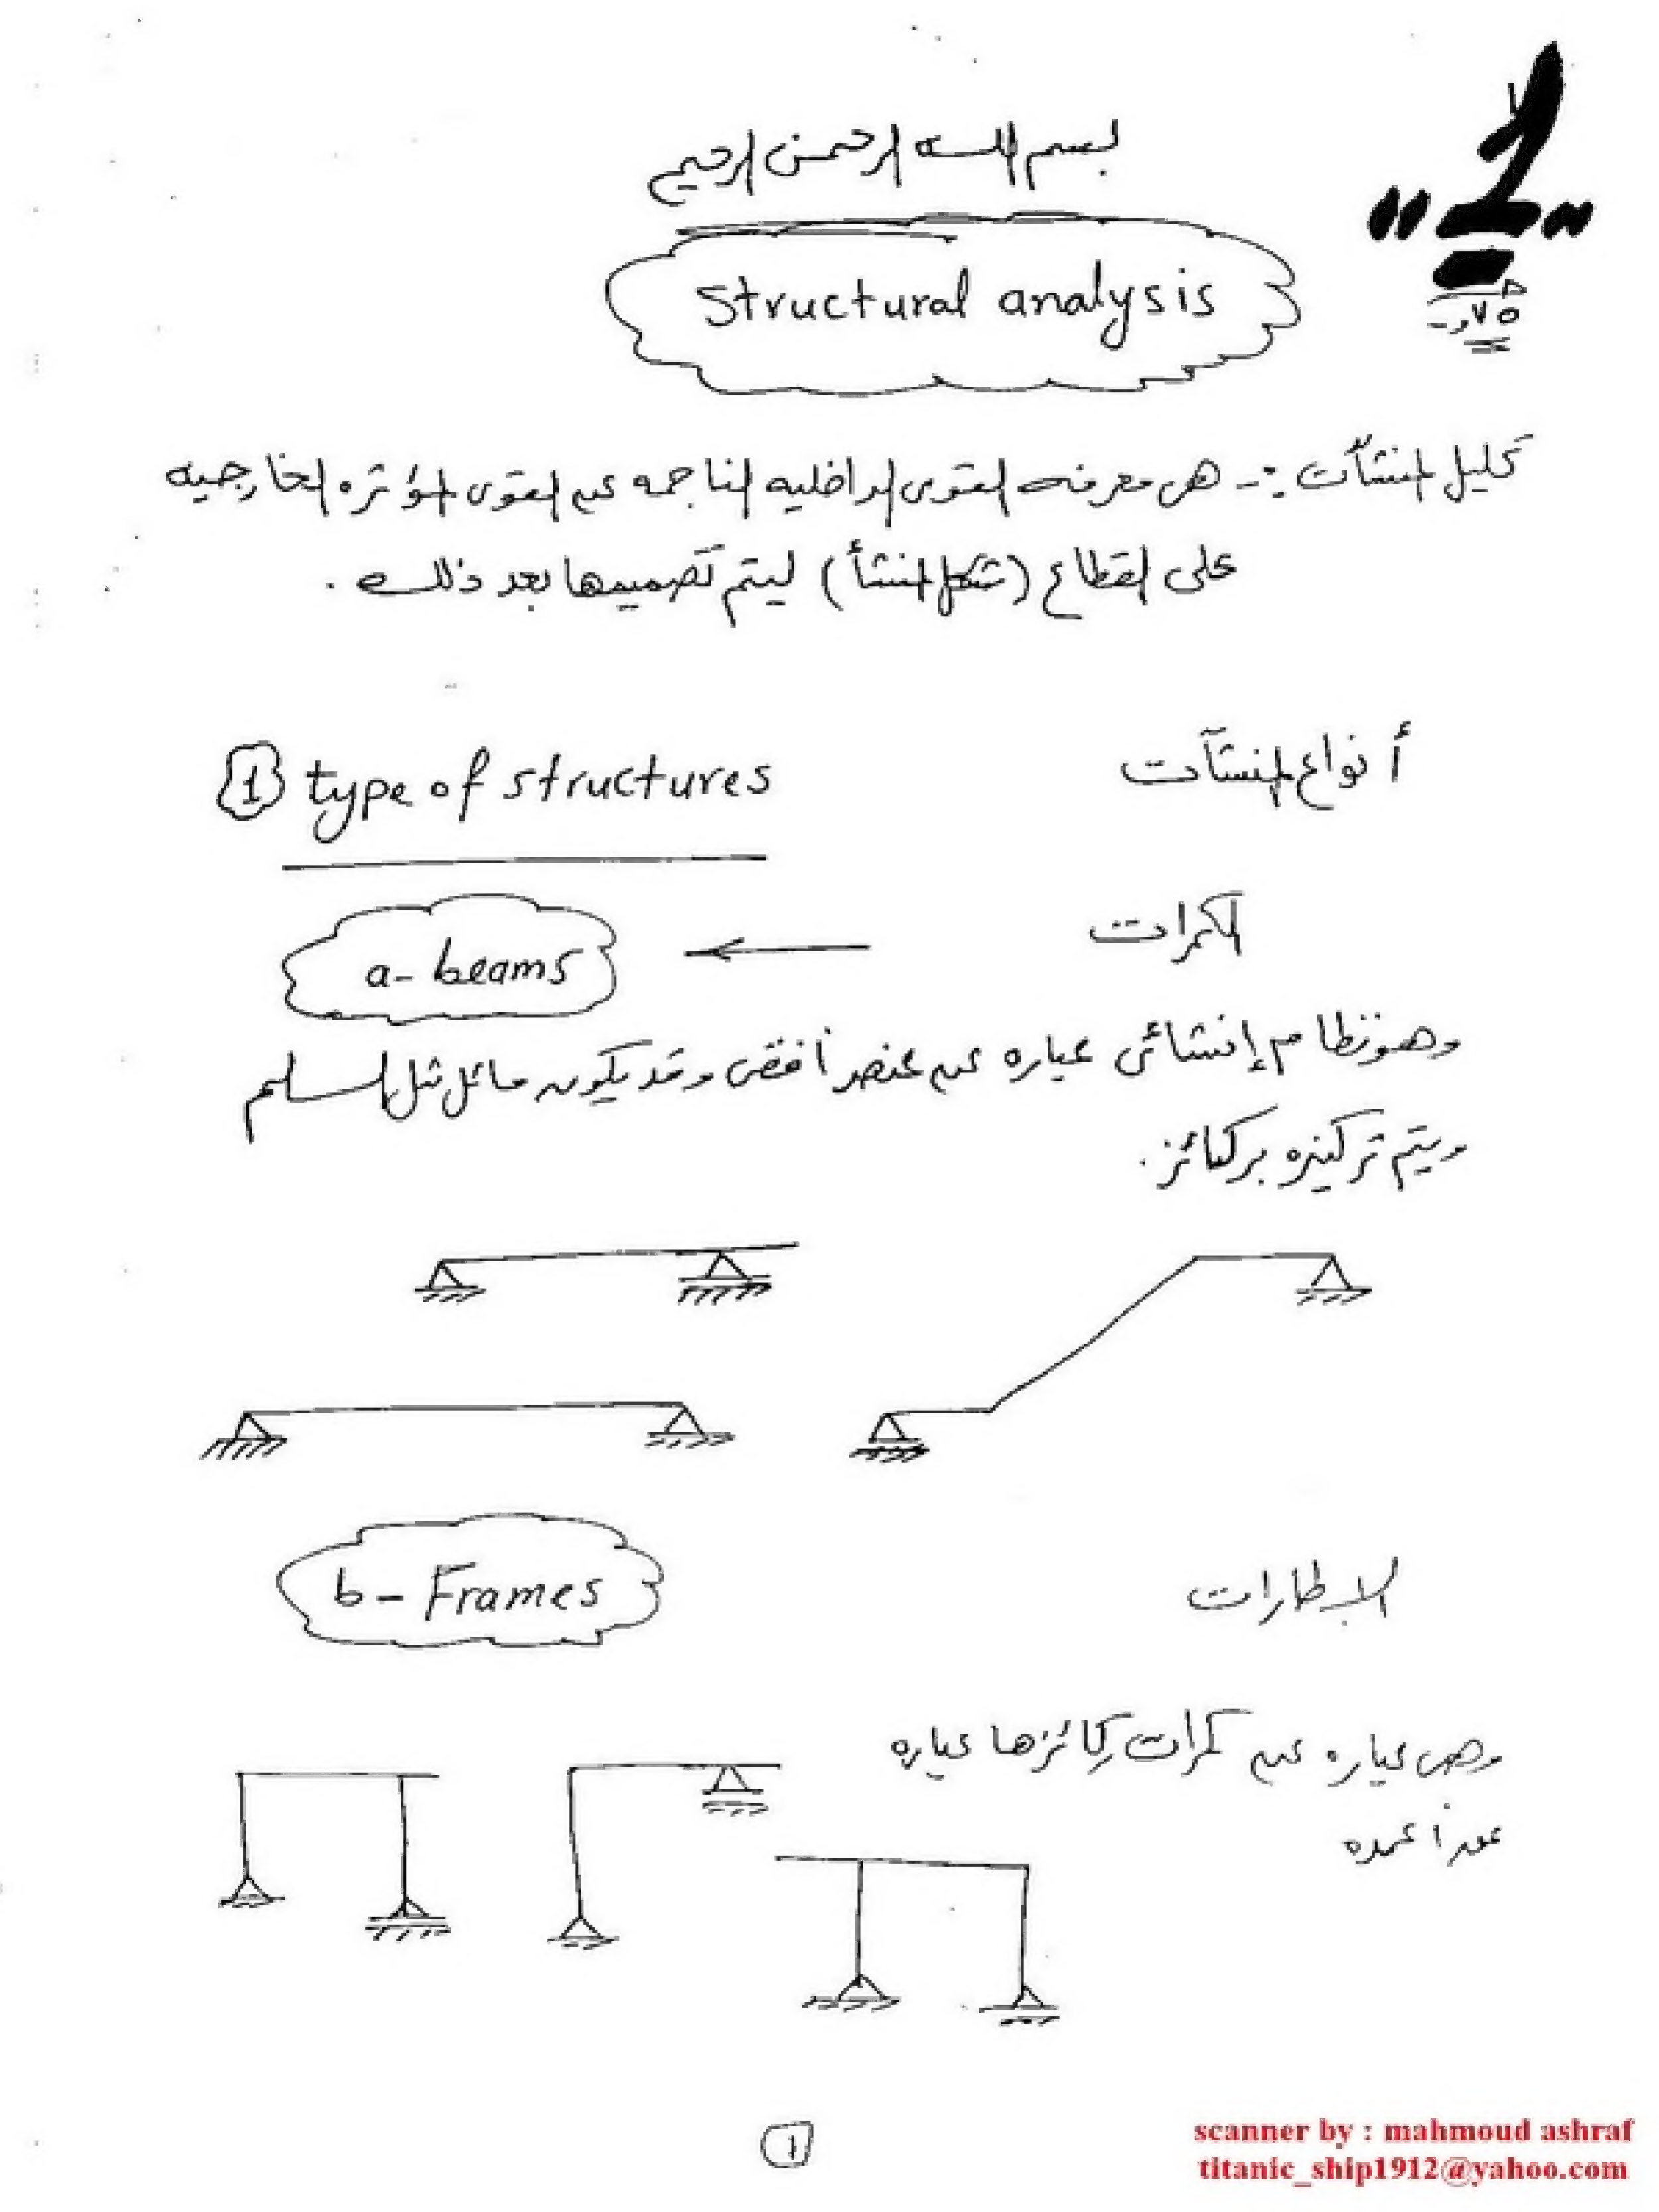 "1"
بسم الله الرحمن الرحيم
Structural analysis
تحليل المنشآت :- هى معرفه القوى الداخليه الناجمه عن القوى المؤثره الخارجيه
على القطاع (شكل المنشأ) ليتم تصميمها بعد ذلك .
1 type of structures أنواع المنشآت
a- beams الكمرات
وهو نظام إنشائى عباره عن عنصر أفقى وقد يكون مائل مثل السلم
ويتم تركيزه بركائز .
b- Frames الإطارات
وهى عباره عن كمرات ركائزها عباره
عن أعمده
1
scanner by : mahmoud ashraf
titanic_ship1912@yahoo.com